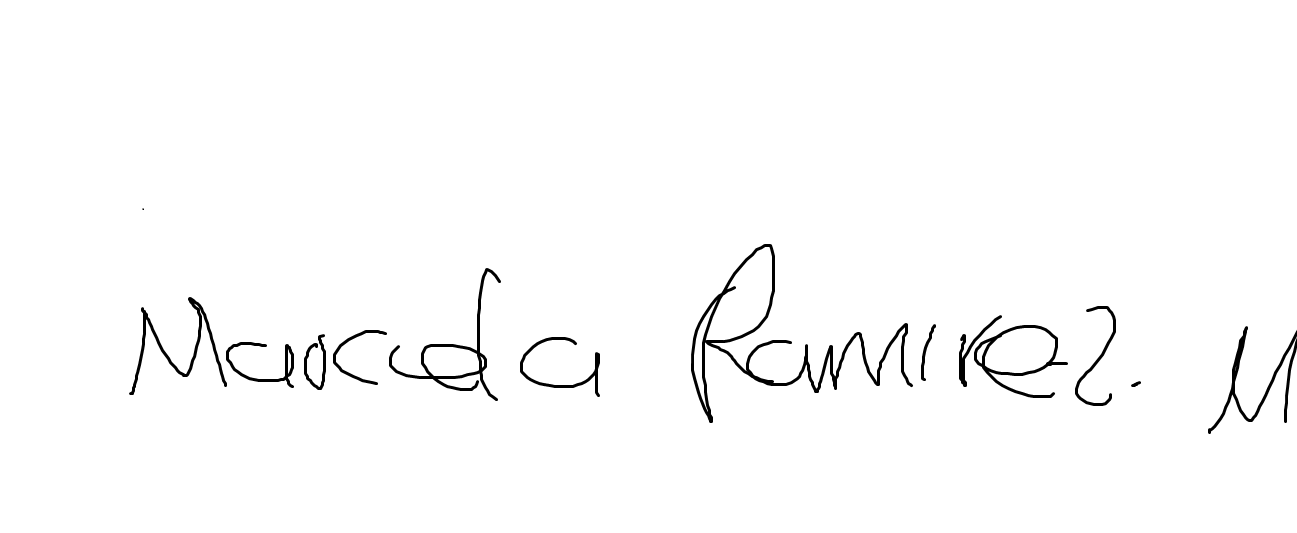 Marcela Ramirez. M